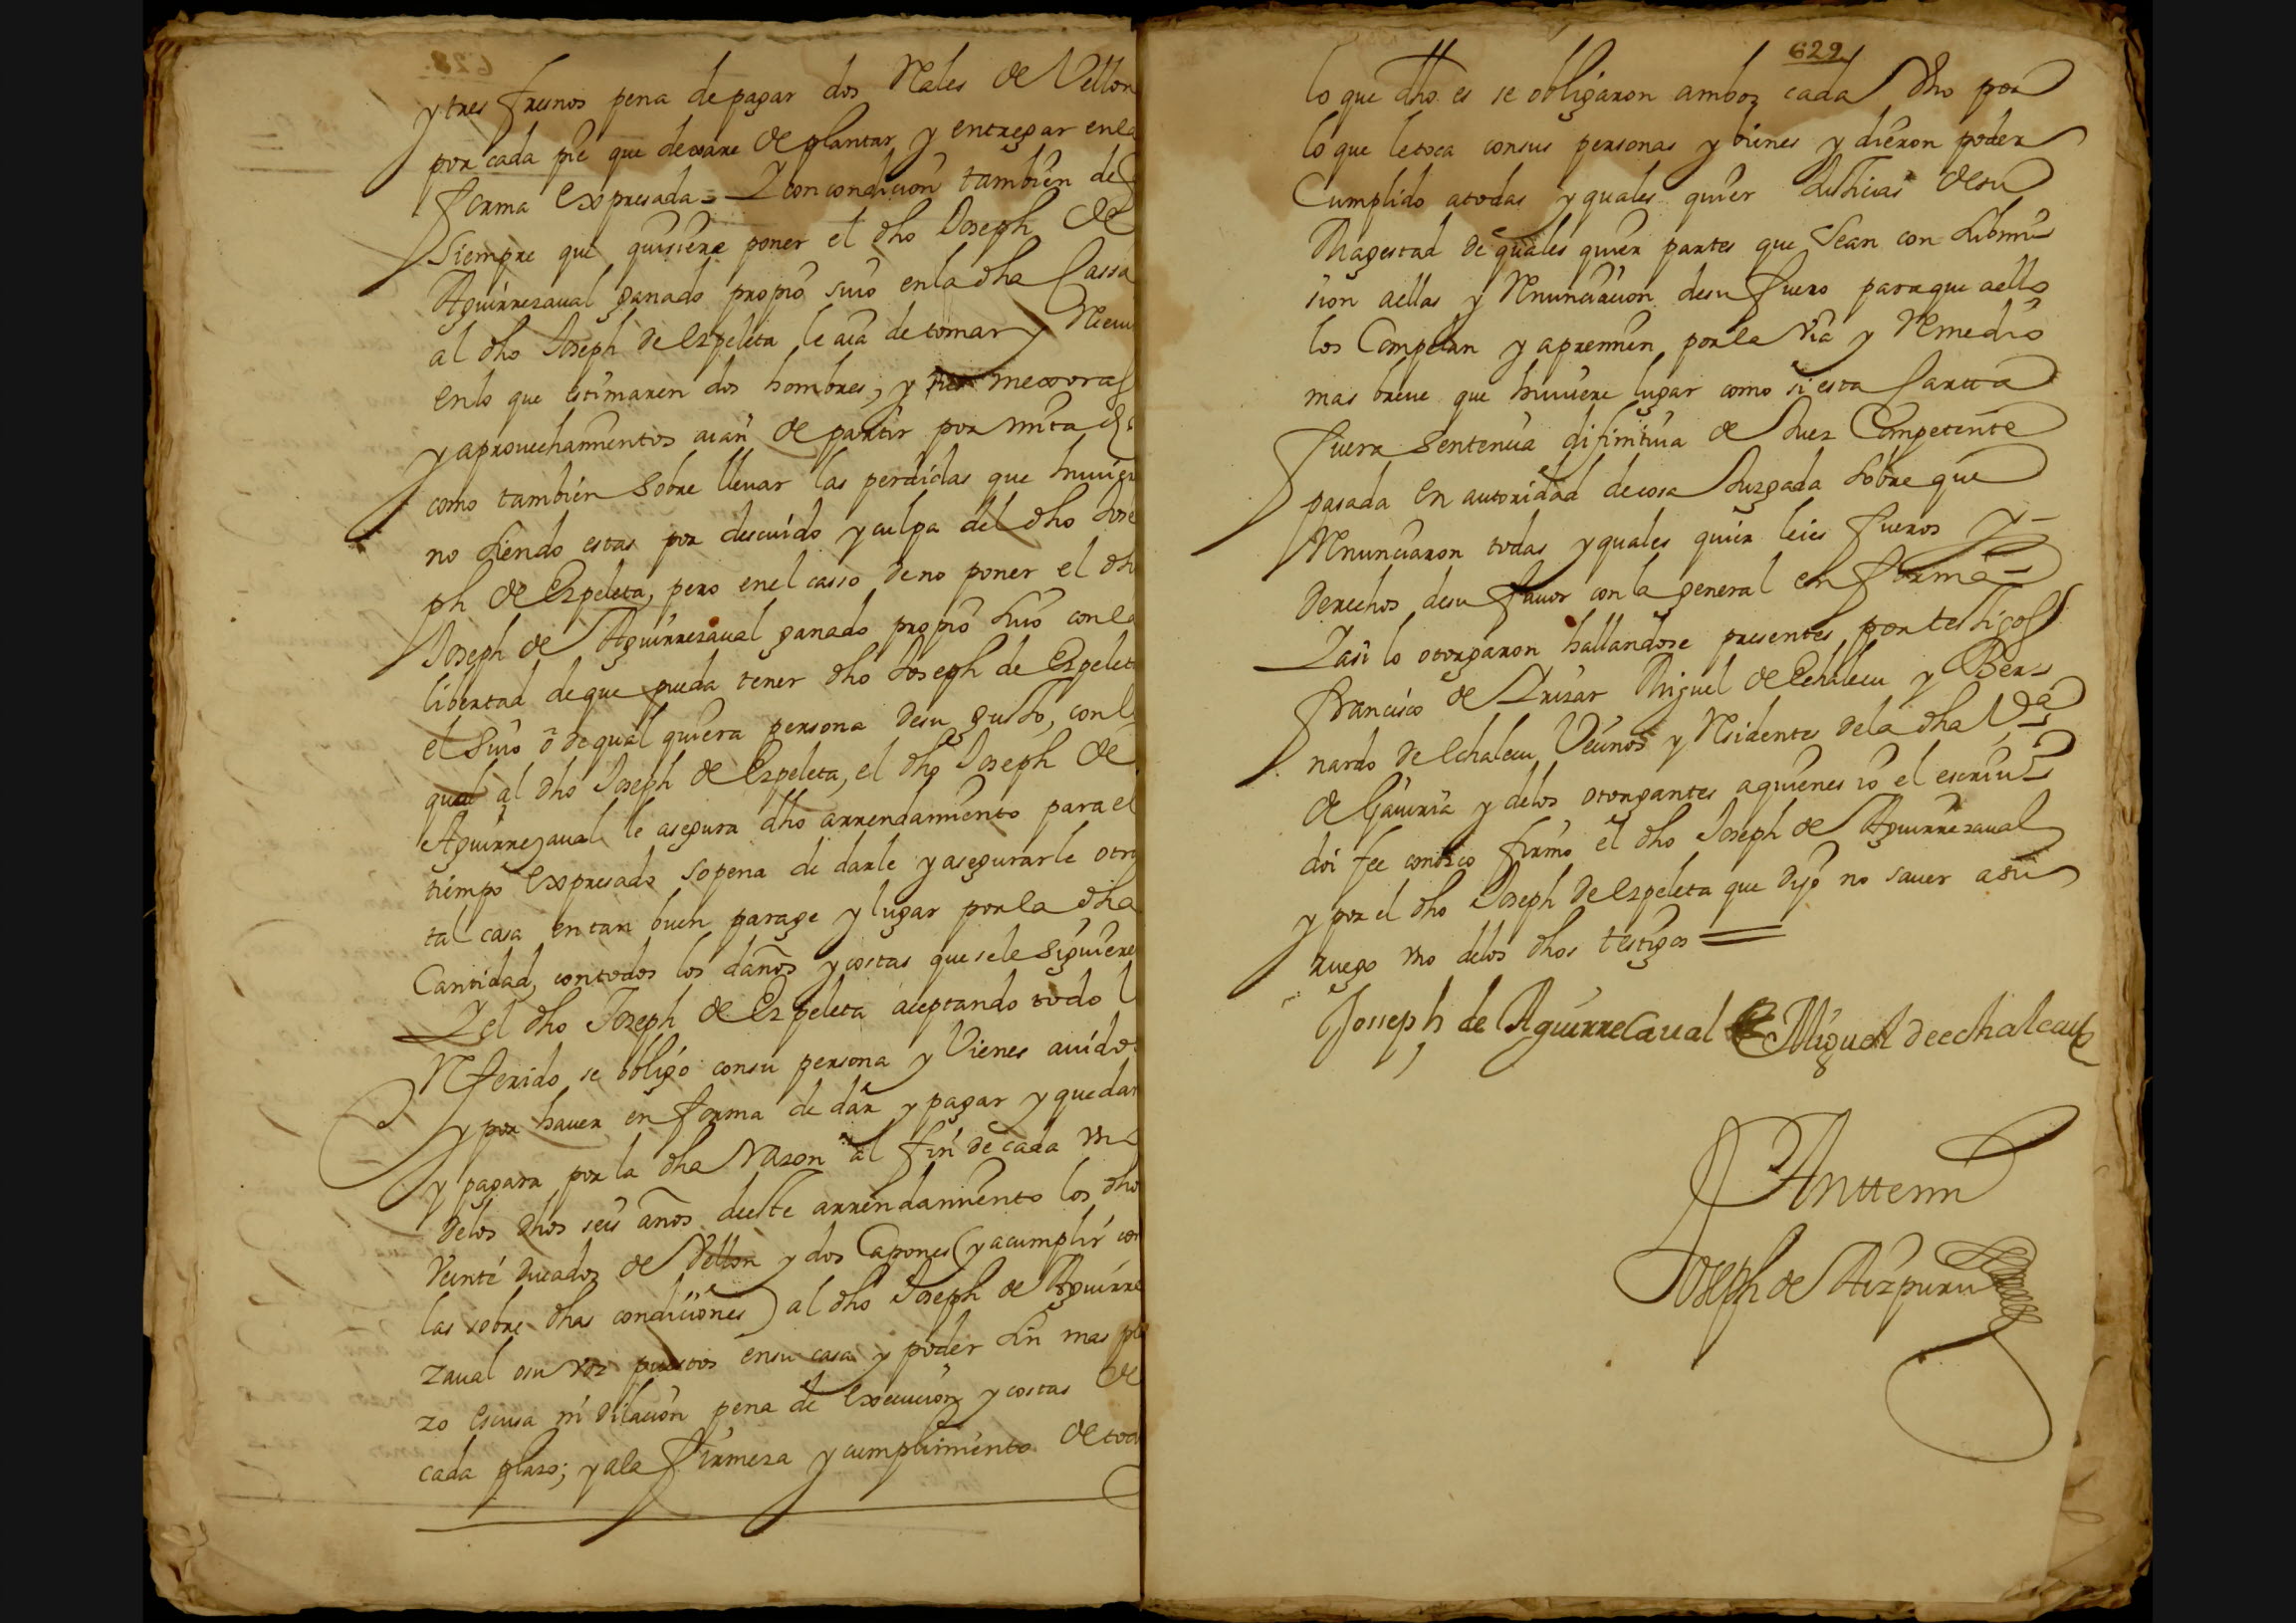 y tres fresnos pena de pagar dos Reales de Vellon
por cada pie que dexare de plantar y entregar en la
forma expresada = Y con condicion tambien de q
Siempre que quisiere poner el dho Joseph de
Aguirrezaual ganado propio suio en la dha Cassa
al dho Joseph de Ezpeleta le aia de tomar y
en lo que estimaren dos hombres, y mexoras
y aprouechamientos aian de partir por mitad
como tambien sobre lleuar las perdidas que huuier
no siendo estas por descuido y culpa del dho Jose
ph de Ezpeleta, pero en el casso de no poner el dh
Joseph de Aguirrezaual ganado propio suio con la
libertad de que pueda tener dho Joseph de Ezpelet
el suio ô de qual quiera persona de su gusto, con l
qual al dho Joseph de Ezpeleta, el dho Joseph de
Aguirrezaual le asegura dho arrendamiento para el
tiempo expresado so pena de darle y asegurarle otr
tal casa en tan buen parage y lugar por la dha
Cantidad, con todos los daños y costas que se le siguiere
Y el dho Joseph de Ezpeleta aceptando todo l
Referido se obligó con su persona y Vienes auidos
y por hauer en forma de dar y pagar y que dar
y pagara por la dha razon al fin de cada vn
de los dhos seis años deeste arrendamiento los dho
Veinte ducados de Vellon y dos Capones (y a cumplir con
las sobre dhas condiciones) al dho Joseph de Aguirre
zaual o su voz puestos en su casa y poder sin mas pla
zo escusa ni dilacion pena de execucion y costas de
cada plazo; y a la firmeza y cumplimiento de tod
629
lo que dho es se obligaron ambos cada vno por
lo que le toca con sus personas y bienes y dieron poder
Cumplido a todas y quales quier Justicias de su
Magestad de quales quier partes que sean con submi
sion a ellas y Renunciacion de su fuero para que a ello
los Compelan y apremien por la via y Remedio
mas breue que huuiere lugar como si esta Cartta
fuera Sentencia difinitiua de Juez Competente
pasada en autoridad de cosa Juzgada sobre que
Renunciaron todas y quales quier leies fueros y
derechos de su fauor con la general en forma =
Y asi lo otorgaron hallandose presentes por testigos
Francisco de Miguel de Echalecu y Ber
nardo de Echalecu Vecinos y Residentes de la dha Va
de Gauiria y de los otorgantes a quienes io el escriu
doi fee conozco firmó el dho Joseph de Aguirrezaual
y por el dho Joseph de Ezpeleta que dijo no sauer a su
ruego vno de los dhos testigos =
Josseph de Aguirreçaual Miguel de echalecu
Anttemi
Joseph de Aizpuru